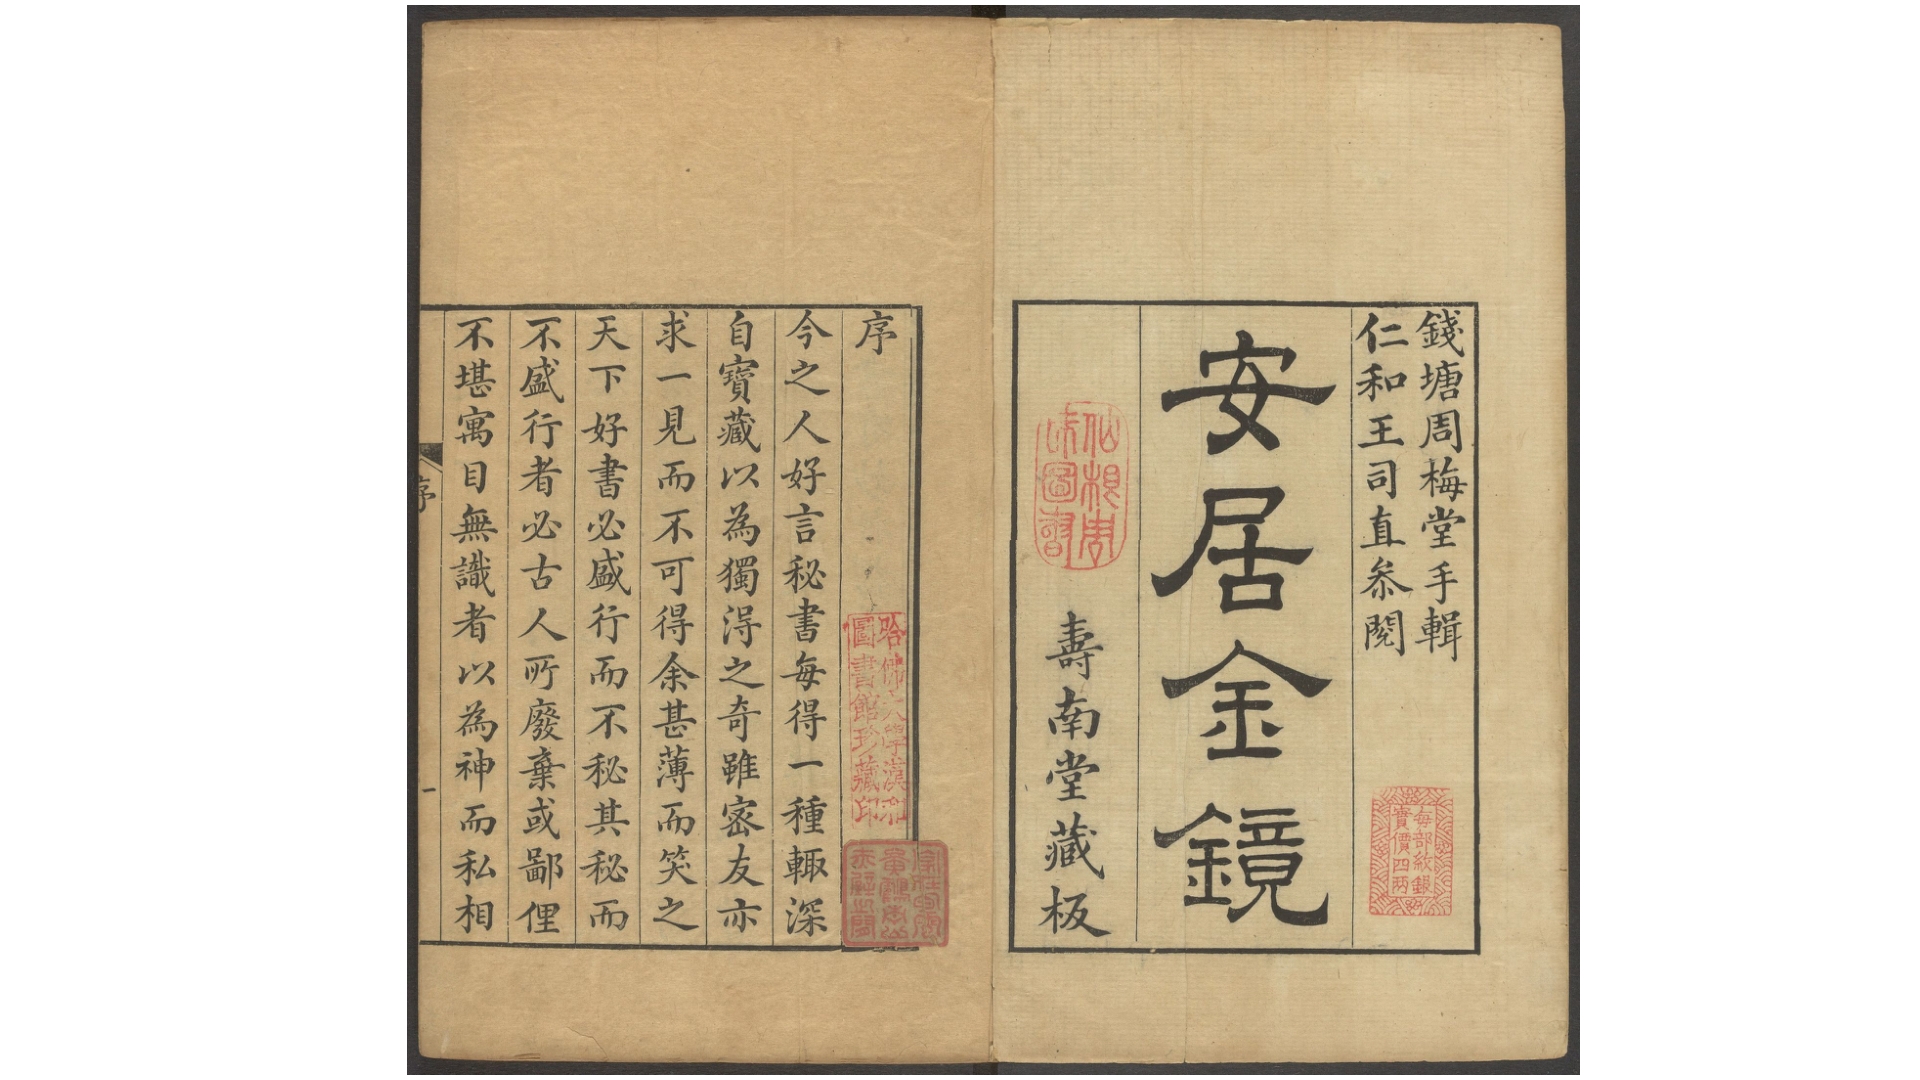 錢塘周梅堂手輯
仁和王司直叅閱
每部紋銀
實價四兩
安居金鏡
壽南堂藏板
序
哈佛大學漢和
圖書館珍藏印
今之人好言秘書每得一種輙深
自寶藏以為獨淂之奇雖密友亦
求一見而不可得余甚薄而笑之
天下好書必盛行而不秘其秘而
不盛行者必古人所廢棄或鄙俚
不堪寓目無識者以為神而私相
序
一